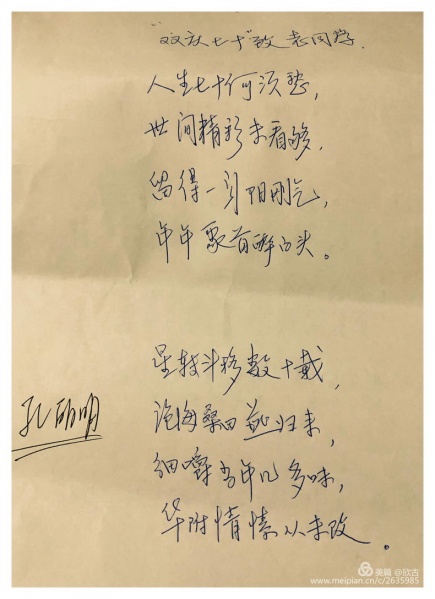 "双庆七十"致老同学.
人生七十何须愁,
世间精彩未看够.
留得一身阳刚气,
年年聚首醉白头。
星转斗移数十载,
沧海桑田 归来,
细嚼当年几多味,
华附情愫从未改。
孔 明
美篇 @欣古
www.meipian.cn/c/2635985